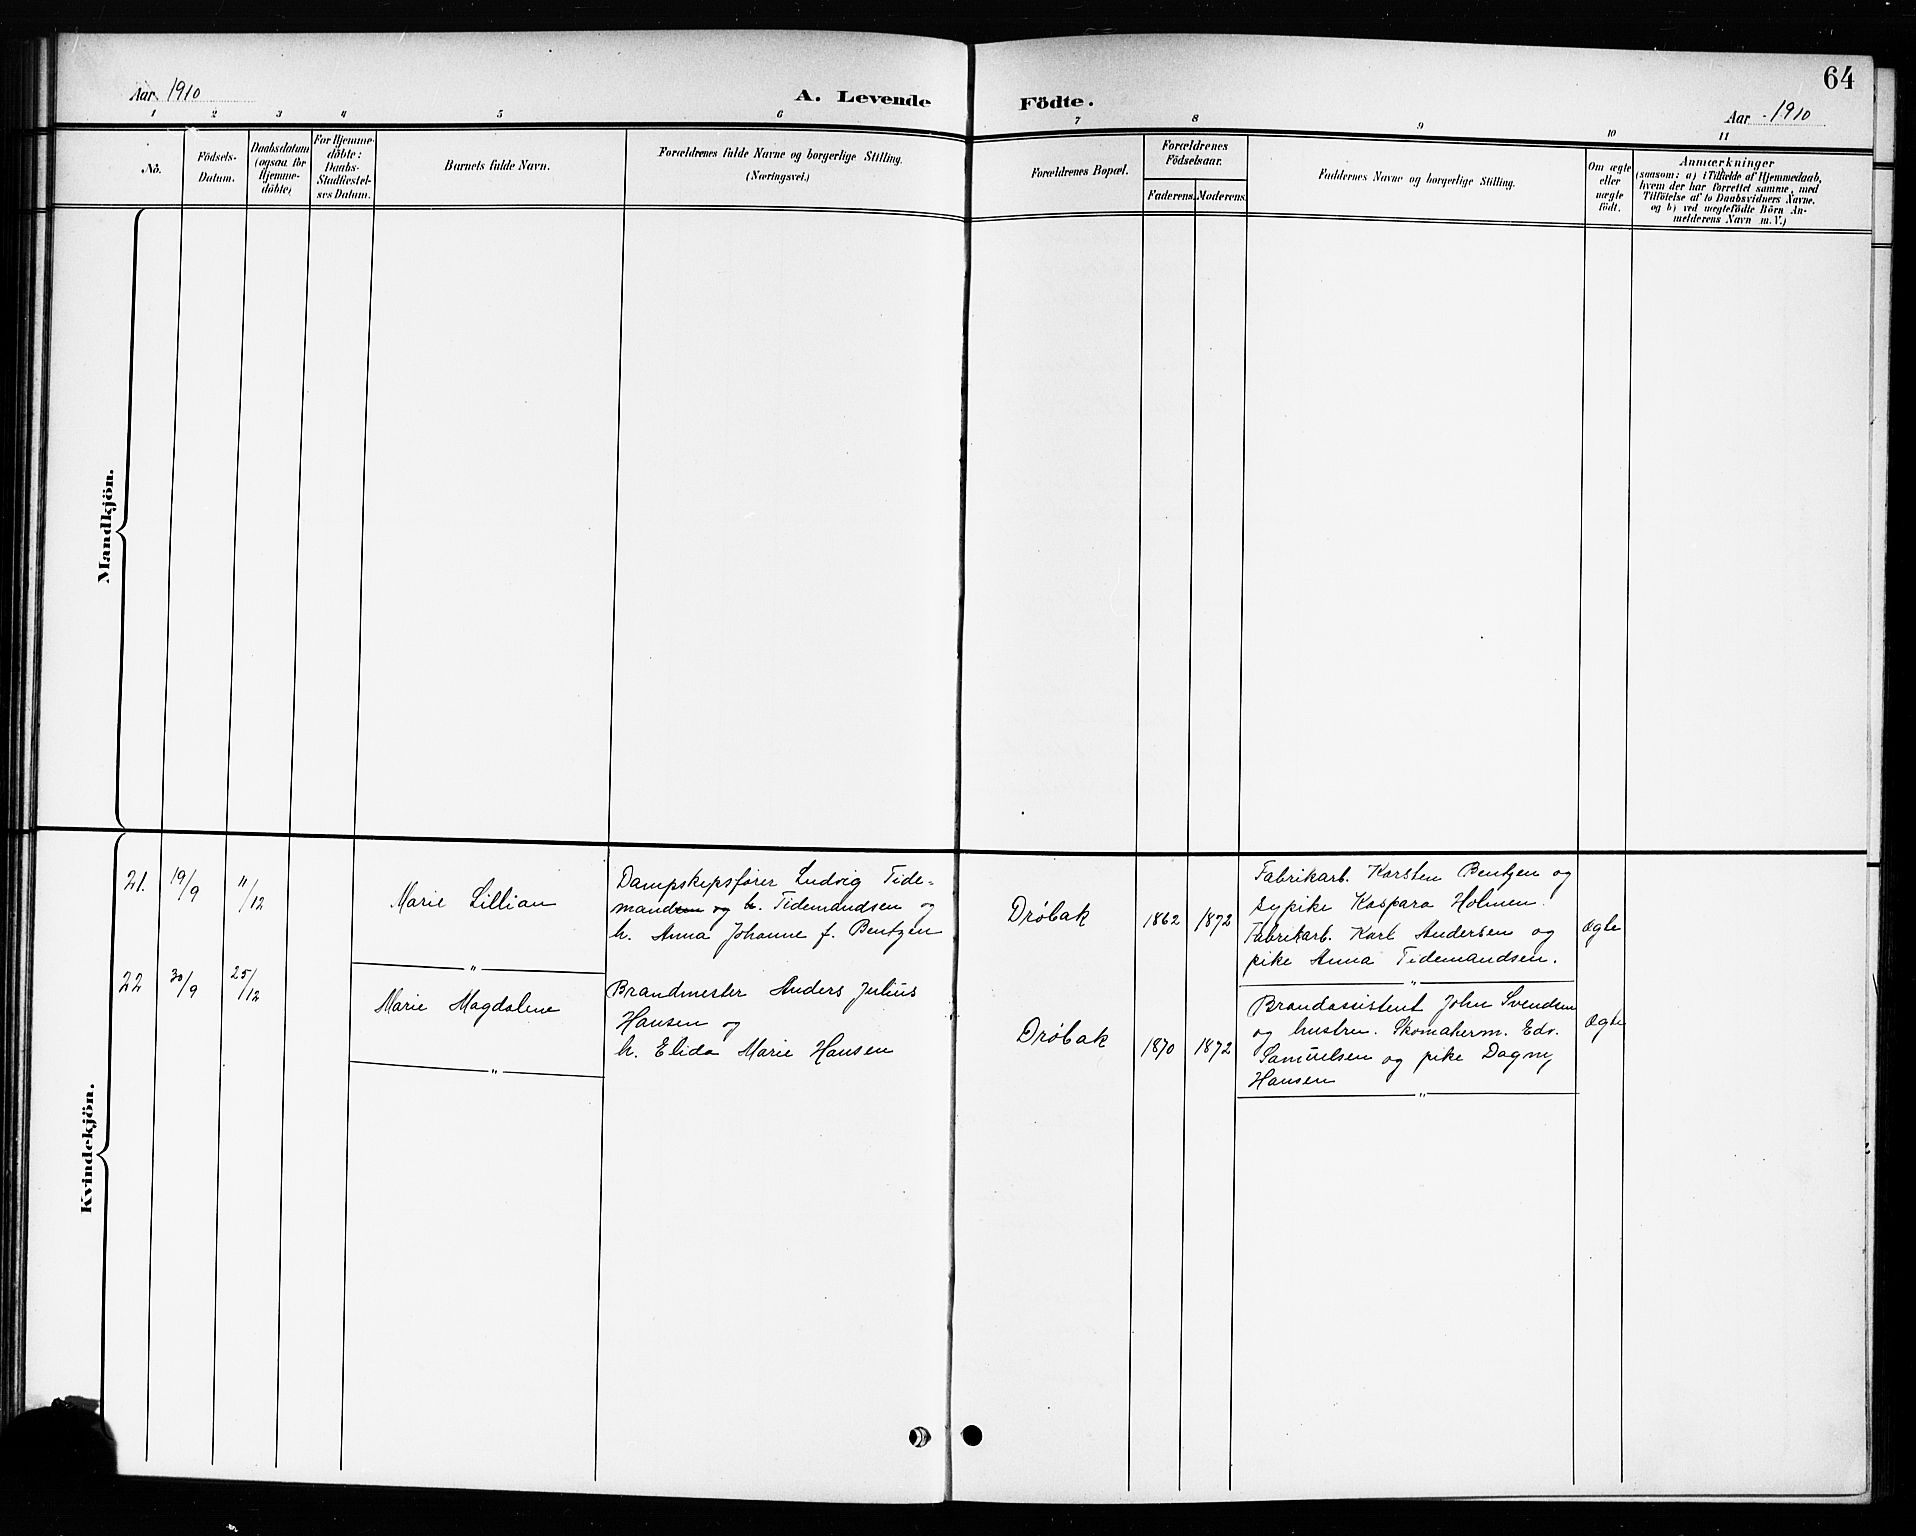 64
Aar 1910
A. Levende Födte.
Aar 1910
1 2 3 4 5 6 7 8 9 10 11
No.
Födsels-
Datum.
Daabsdatum
(ogsaa for
Hjemme-
döbte)
For Hjemme-
döbte:
Daabs-
Stadfæstel-
ses Datum.
Barnets fulde Navn.
Forældrenes fulde Navne og borgerlige Stilling.
(Næringsvei.)
Forældrenes Bopæl.
Forældrenes
Födselsaar.
Faderens. Moderens.
Faddernes Navne og borgerlige Stilling.
Om ægte
eller
uægte
födt.
Anmærkninger
(saasom: a) i Tilfælde af Hjemmedaab,
hvem der har forrettet samme, med
Tilföielse af to Daabsvidners Navne.
og b) ved uægtefödte Börn An-
melderens Navn m. V.)
Mandkjön.
Kvindekjön.
21. 19/9 11/12
Marie Lillian
Dampskipsfører Ludvig Tide-
mandsen og h. Tidemandsen og
h. Anna Johanne f. Bentzen
Drøbak
1862 1872
Fabrikarb. Karsten Bentzen og
sypike Kaspara Holmen.
Fabrikarb. Karl Andersen og
pike Anna Tidemandsen.
Ægte
22 30/9 25/12
Marie Magdalene
Brandmester Anders Julius
Hansen og
h. Elida Marie Hansen
Drøbak
1870 1872
Brandassistent John Svendsen
og hustru. Skomakerm. Edv.
Samuelsen og pike Dagny
Hansen
Ægte